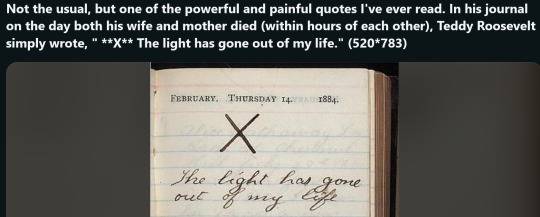 Not the usual, but one of the powerful and painful quotes I've ever read. In his journal
on the day both his wife and mother died (within hours of each other), Teddy Roosevelt
simply wrote, " **X** The light has gone out of my life." (520*783)
FEBRUARY. THURSDAY 14. 1884.
X
The light has gone
out of my life